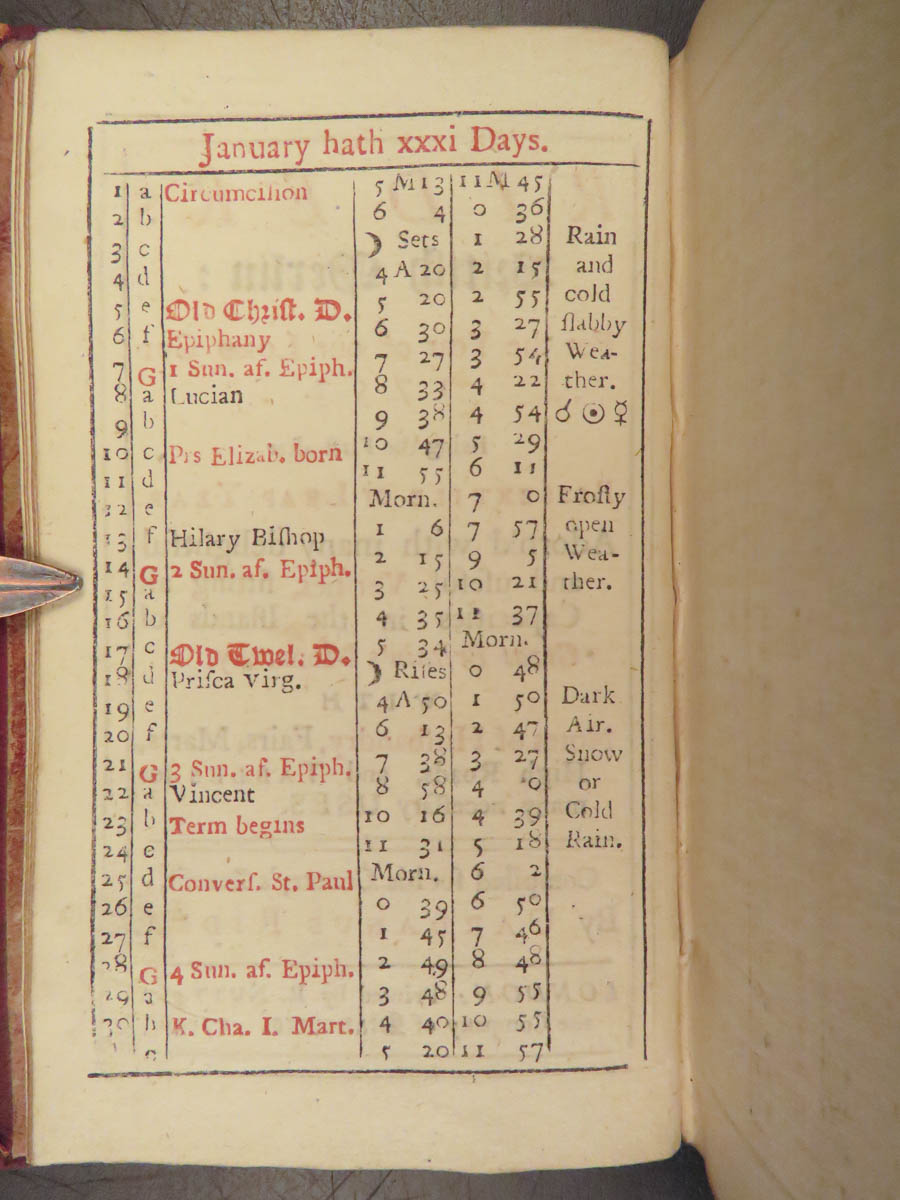 January hath xxxi Days.
1 a Circumciſion 5 M 13 11 M 45
2 b 6 4 0 36
3 c ☽ Sets 1 28 Rain
4 d 4 A 20 2 15 and
5 e Old Chriſt. D. 5 20 2 55 cold
6 f Epiphany 6 30 3 27 ſlabby
7 G 1 Sun. af. Epiph. 7 27 3 54 Wea-
8 a Lucian 8 33 4 22 ther.
9 b 9 38 4 54 ☌ ☉ ☿
10 c Prs Elizab. born 10 47 5 29
11 d 11 55 6 11
12 e Morn. 7 0 Froſty
13 f Hilary Biſhop 1 6 7 57 open
14 G 2 Sun. af. Epiph. 2 15 9 5 Wea-
15 a 3 25 10 21 ther.
16 b 4 35 11 37
17 c Old Twel. D. 5 34 Morn.
18 d Priſca Virg. ☽ Riſes 0 48
19 e 4 A 50 1 50 Dark
20 f 6 13 2 47 Air.
21 G 3 Sun. af. Epiph. 7 38 3 27 Snow
22 a Vincent 8 58 4 0 or
23 b Term begins 10 16 4 39 Cold
24 c 11 31 5 18 Rain.
25 d Converſ. St. Paul Morn. 6 2
26 e 0 39 6 50
27 f 1 45 7 46
28 G 4 Sun. af. Epiph. 2 49 8 48
29 a 3 48 9 55
30 b K. Cha. I. Mart. 4 40 10 55
c 5 20 11 57